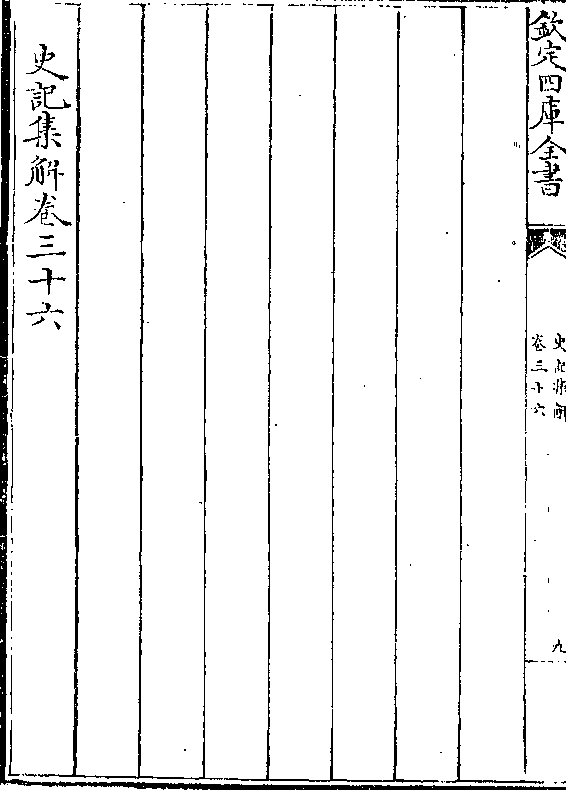 欽定四庫全書
史記集解
卷三十六
九
史記集解卷三十六